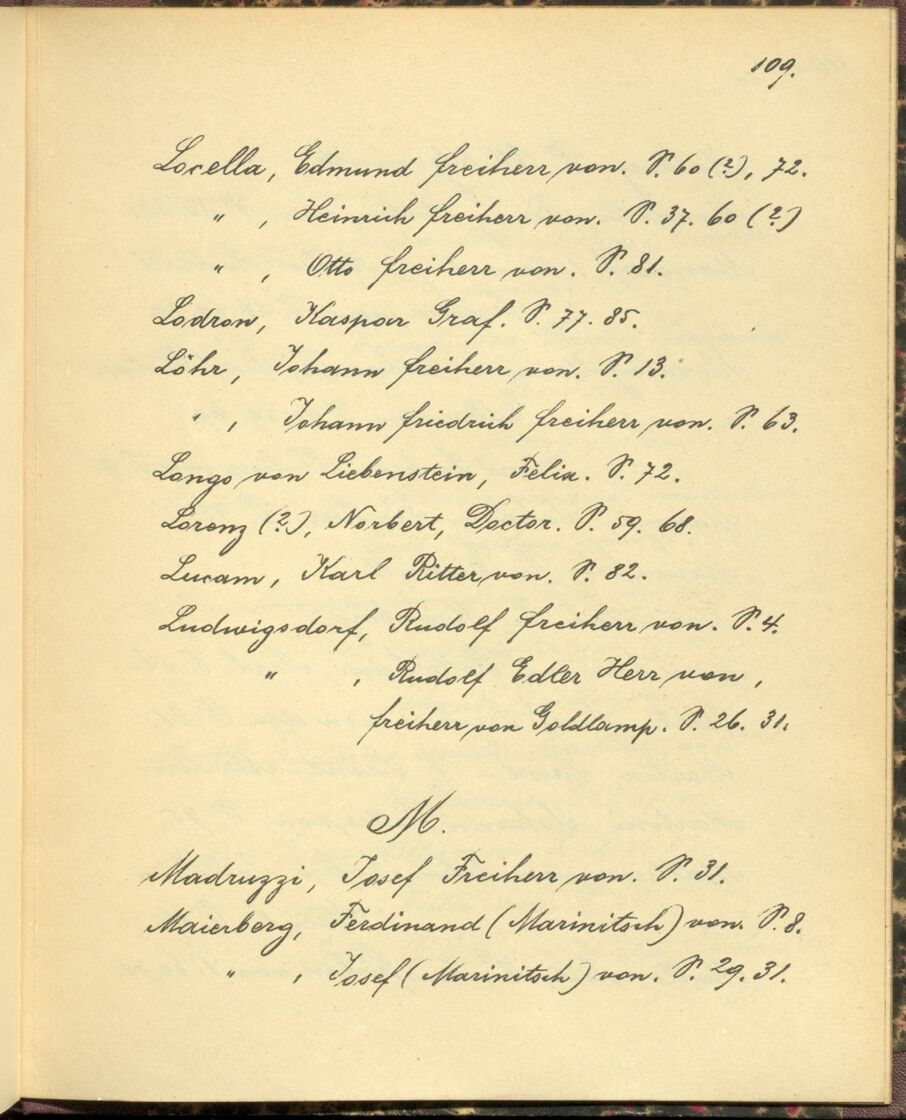 109.
Locella, Edmund Freiherr von. S. 60 (?), 72.
" , Heinrich Freiherr von. S. 37. 60 (?)
" , Otto Freiherr von. S. 81.
Lodron, Kaspar Graf. S. 77. 85.
Löhr, Johann Freiherr von. S. 13.
" , Johann Friedrich Freiherr von. S. 63.
Longo von Liebenstein, Felix. S. 72.
Lorenz (?), Norbert, Doctor. S. 59. 68.
Lucam, Karl Ritter von. S. 82.
Ludwigsdorf, Rudolf Freiherr von. S. 4.
" , Rudolf Edler Herr von,
Freiherr von Goldlamp. S. 26. 31.
M.
Madruzzi, Josef Freiherr von. S. 31.
Maierberg, Ferdinand (Marinitsch) von. S. 8.
" , Josef (Marinitsch) von. S. 29. 31.